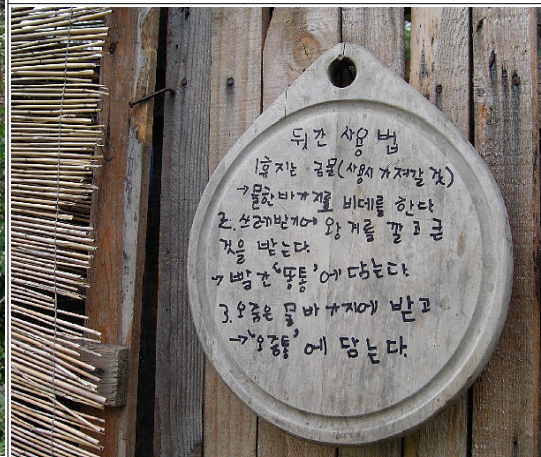 뒷간 사용법
1.휴지는 금물(사용시 가져갈 것)
→물한바가지로 비데를 한다
2. 쓰레받기에 왕겨를 깔고 큰
것을 받는다.
→ 빨간 "똥통"에 담는다.
3. 오줌은 물바가지에 받고
→'오줌통'에 담는다.